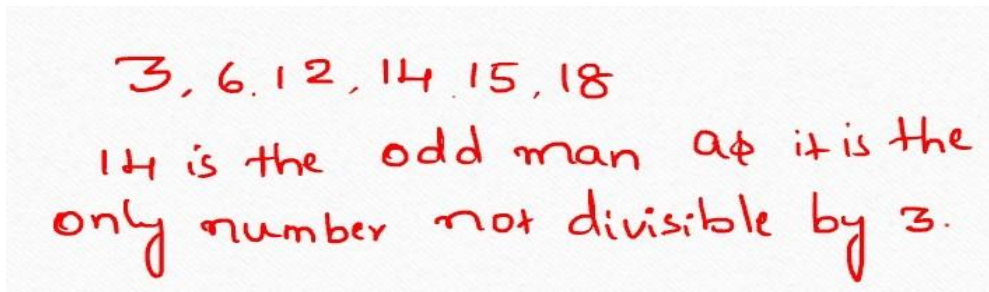 3, 6. 12, 14 15, 18
14 is the odd man as it is the
only number not divisible by 3.